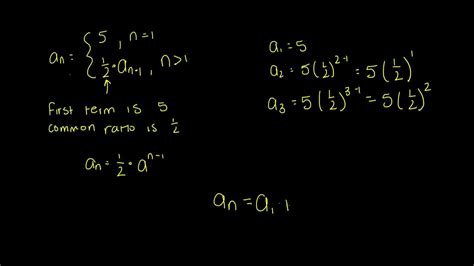 aₙ = { 5 , n=1
½ · aₙ₋₁ , n>1
First term is 5
common ratio is ½
aₙ = ½ · aⁿ⁻¹
a₁ = 5
a₂ = 5(½)²⁻¹ = 5(½)¹
a₃ = 5(½)³⁻¹ = 5(½)²
aₙ = a₁ ·